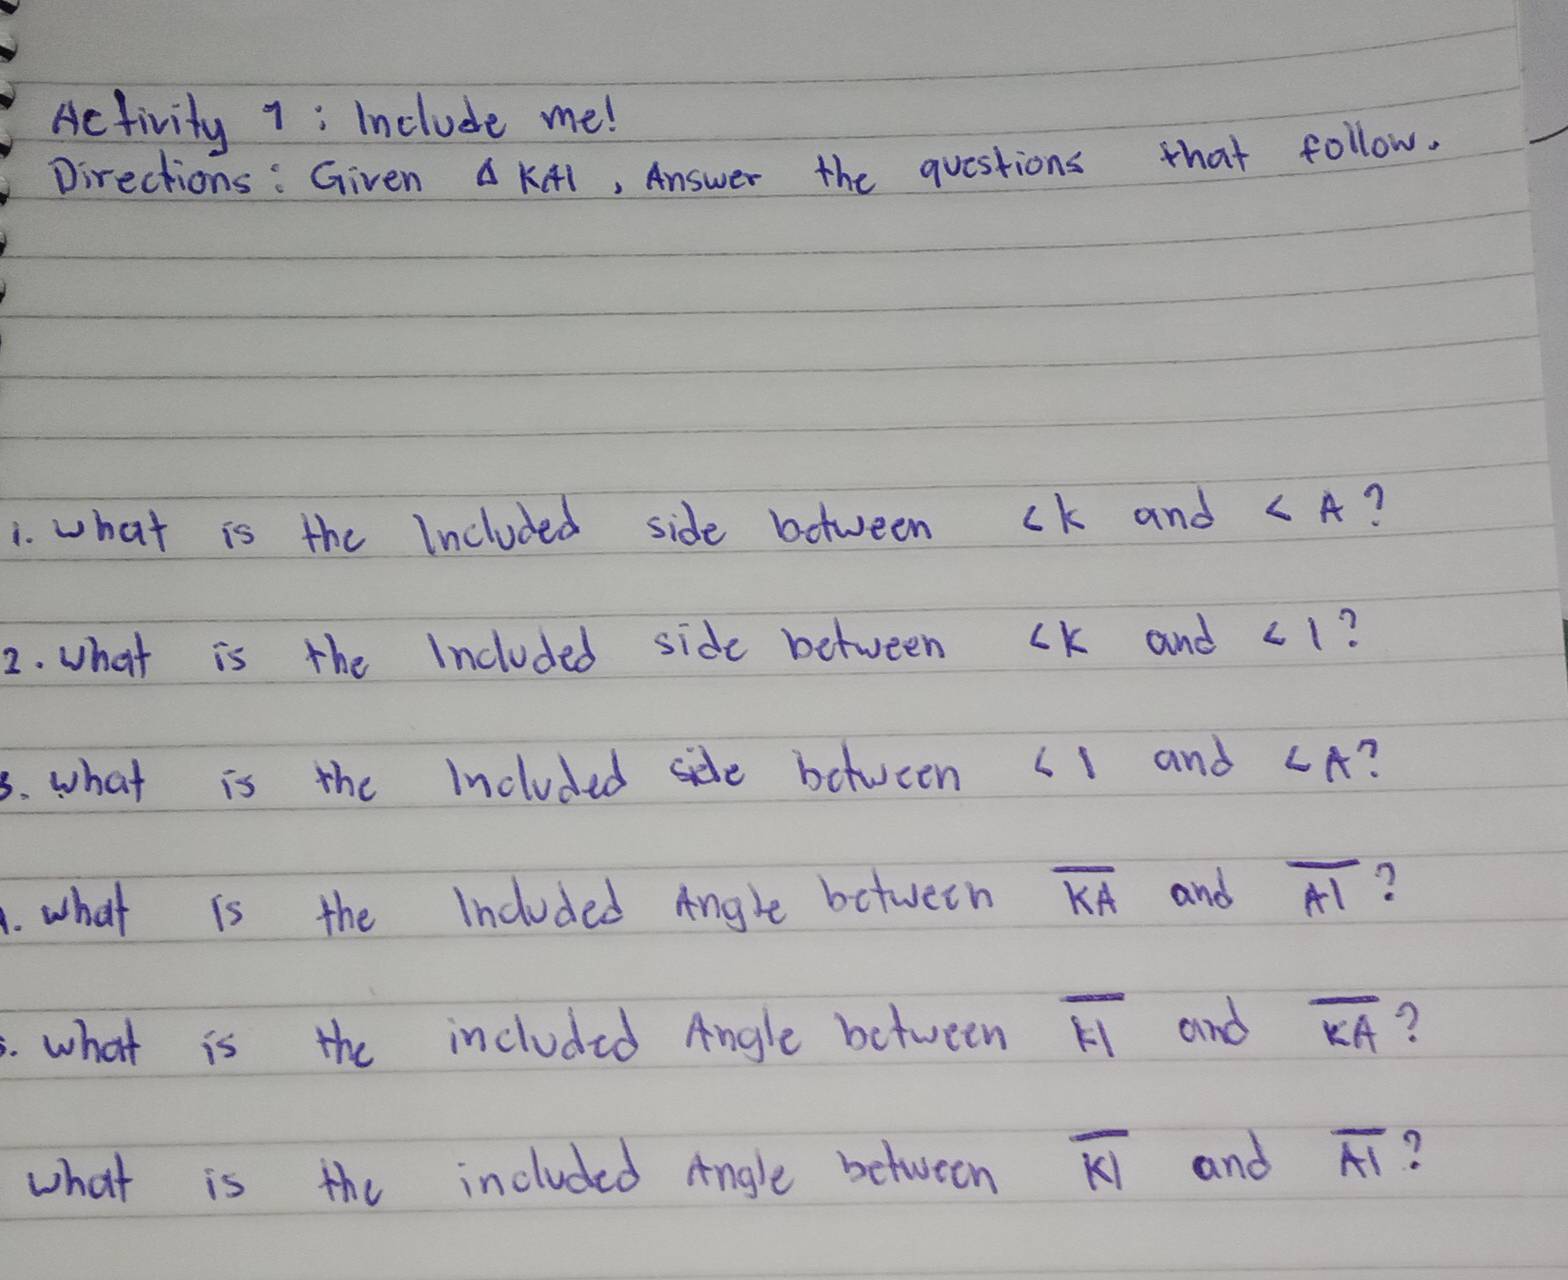 Activity 1 : Include me!
Directions : Given Δ KAI , Answer the questions that follow.
1. What is the Included side between <K and < A?
2. What is the Included side between <K and < I?
3. What is the Included side between < I and <A?
4. What is the Included Angle between K̅A̅ and A̅I̅?
5. What is the included Angle between K̅I̅ and K̅A̅?
What is the included Angle between K̅I̅ and A̅I̅?